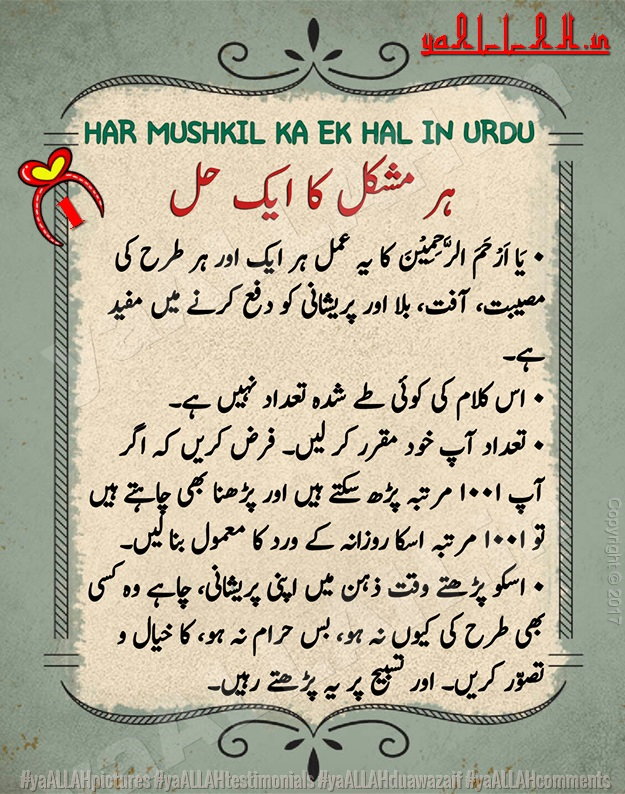 yaALLAH.in
HAR MUSHKIL KA EK HAL IN URDU
ہر مشکل کا ایک حل
• یَا اَرْحَمَ الرَّحِمِیْنَ کا یہ عمل ہر ایک اور ہر طرح کی
مصیبت، آفت، بلا اور پریشانی کو دفع کرنے میں مفید
ہے۔
• اس کلام کی کوئی طے شدہ تعداد نہیں ہے۔
• تعداد آپ خود مقرر کر لیں۔ فرض کریں کہ اگر
آپ ۱۰۰۱ مرتبہ پڑھ سکتے ہیں اور پڑھنا بھی چاہتے ہیں
تو ۱۰۰۱ مرتبہ اسکا روزانہ کے ورد کا معمول بنا لیں۔
• اسکو پڑھتے وقت ذہن میں اپنی پریشانی، چاہے وہ کسی
بھی طرح کی کیوں نہ ہو، بس حرام نہ ہو، کا خیال و
تصوّر کریں۔ اور تسبیح پر یہ پڑھتے رہیں۔
Copyright © 2017
#yaALLAHpictures #yaALLAHtestimonials #yaALLAHduawazaif #yaALLAHcomments